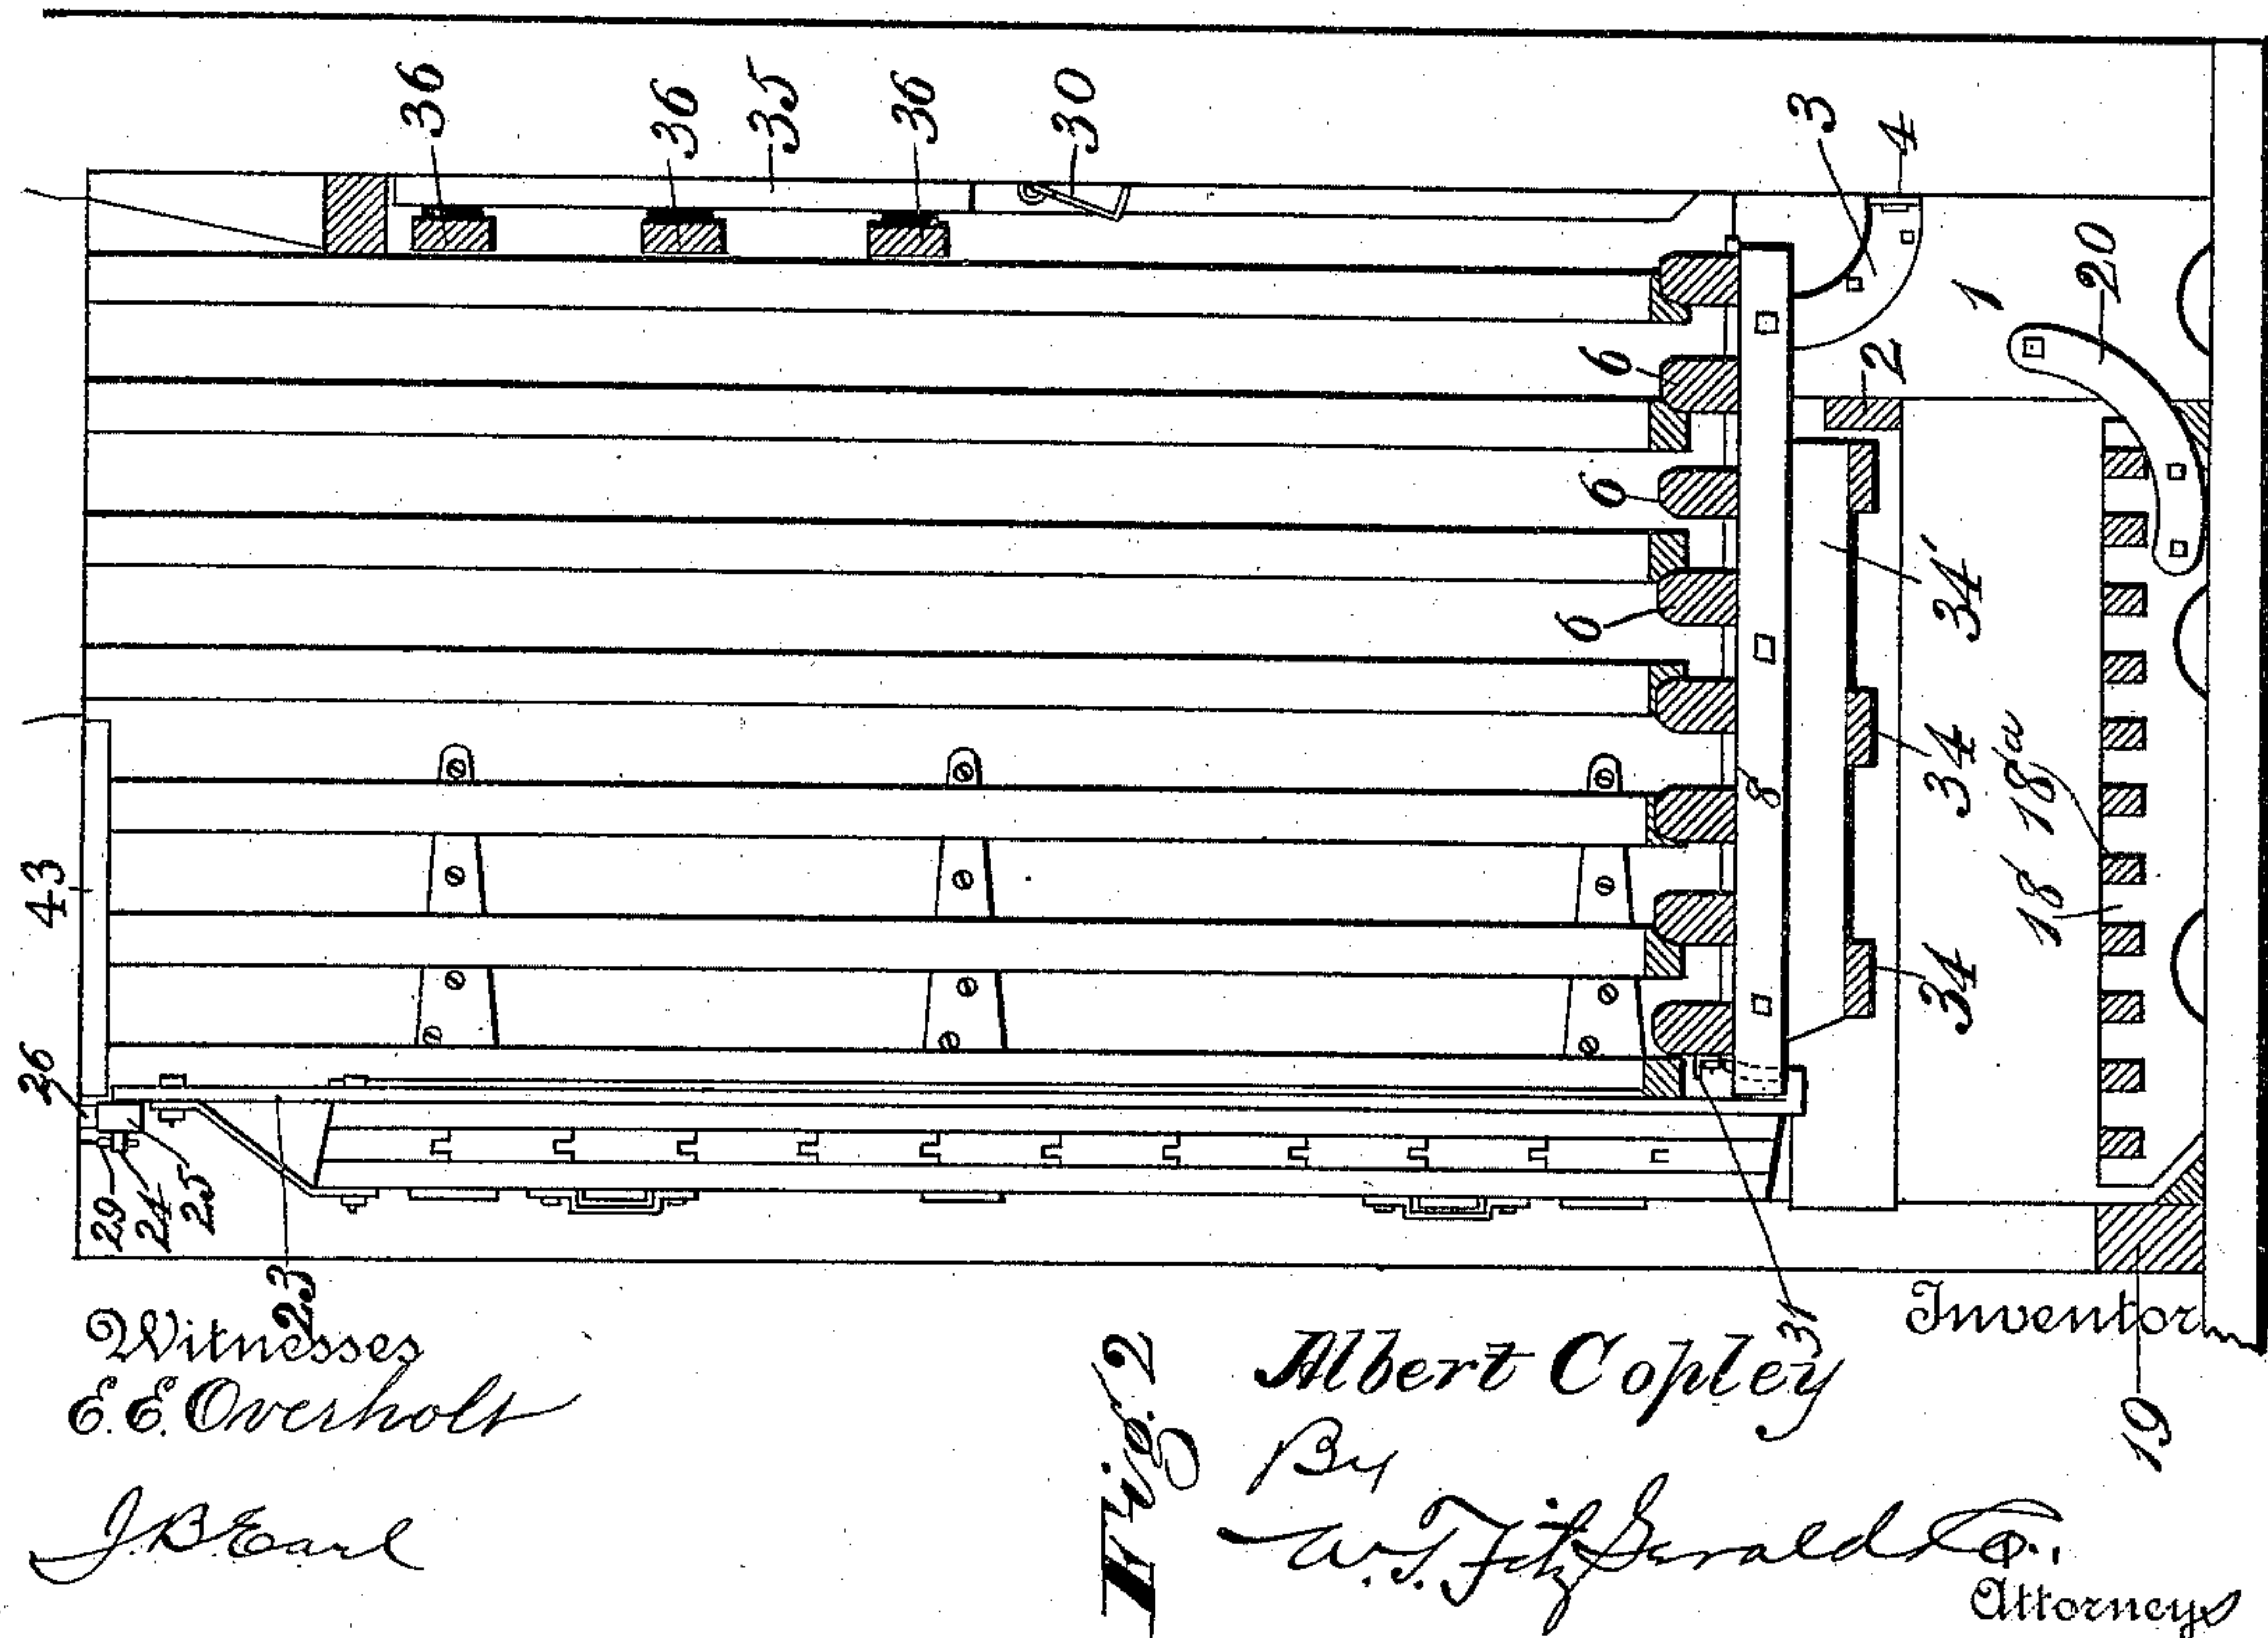 36
36
35
36
30
3
4
1
20
2
6
6
6
8
34'
34
34
18
18a
43
26
29
24
25
23
31
19
Witnesses
E. E. Overholt
J. B. Earl
Fig. 2
Inventor
Albert Copley
By
W. T. FitzGerald & Co.,
Attorneys